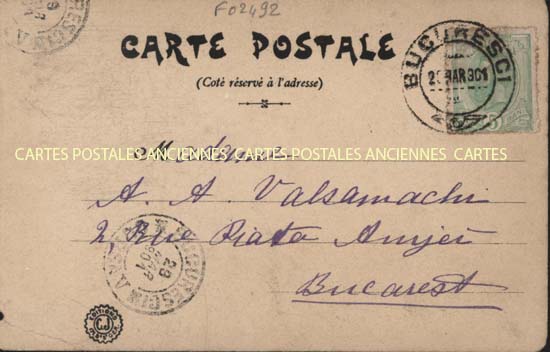 F02492
CARTE POSTALE
(Coté réservé à l'adresse)
BUCURESCI
MAR 901
CARTES POSTALES ANCIENNES CARTES POSTALES ANCIENNES CARTES
Madame
A. A. Valsamachi
2, Rue Piata Amzei
Bucarest
BUCURESCI
28 MAR 901